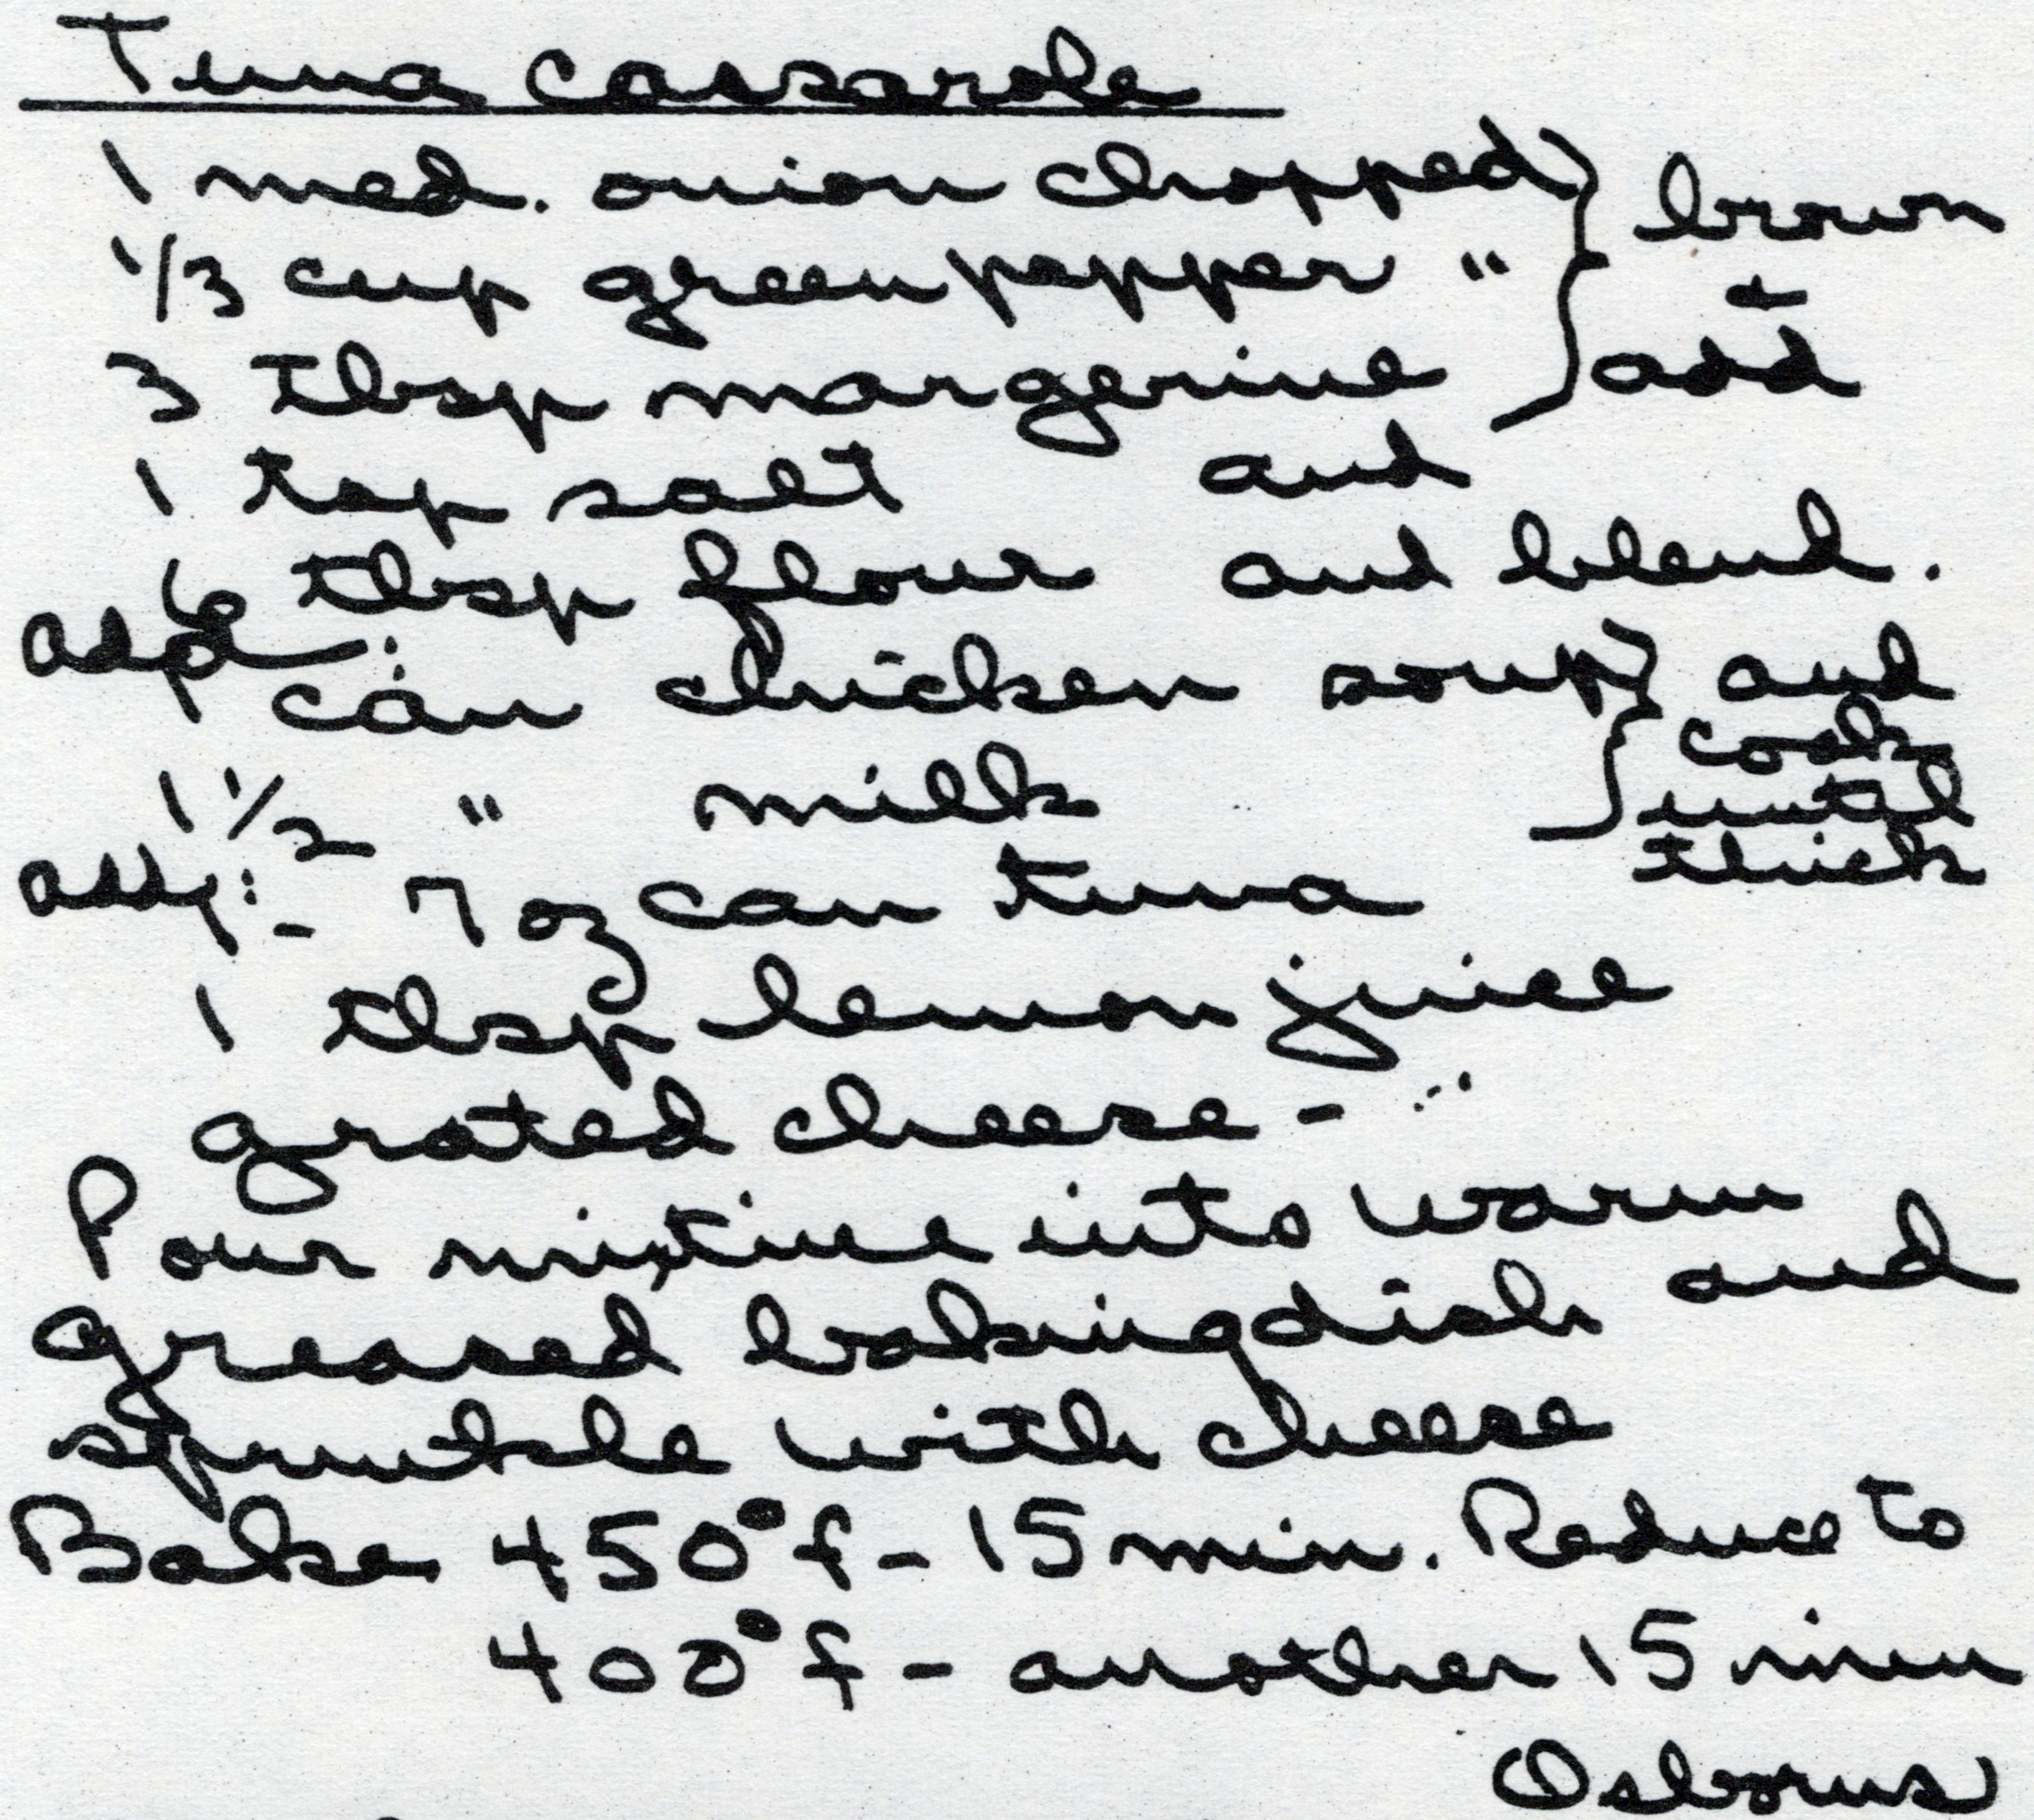 Tuna Cassarole
1 med. onion chopped } brown
1/3 cup green pepper " } +
3 tbsp margerine } add
1 tsp salt and
6 tbsp flour and blend.
add:
1 can chicken soup } and
cook
1 1/2 " milk } until
thick
add: 1 - 7 oz can tuna
1 tbsp lemon juice
grated cheese -
Pour mixture into warm
greased baking dish and
sprinkle with cheese
Bake 450° f - 15 min. Reduce to
400° f - another 15 min